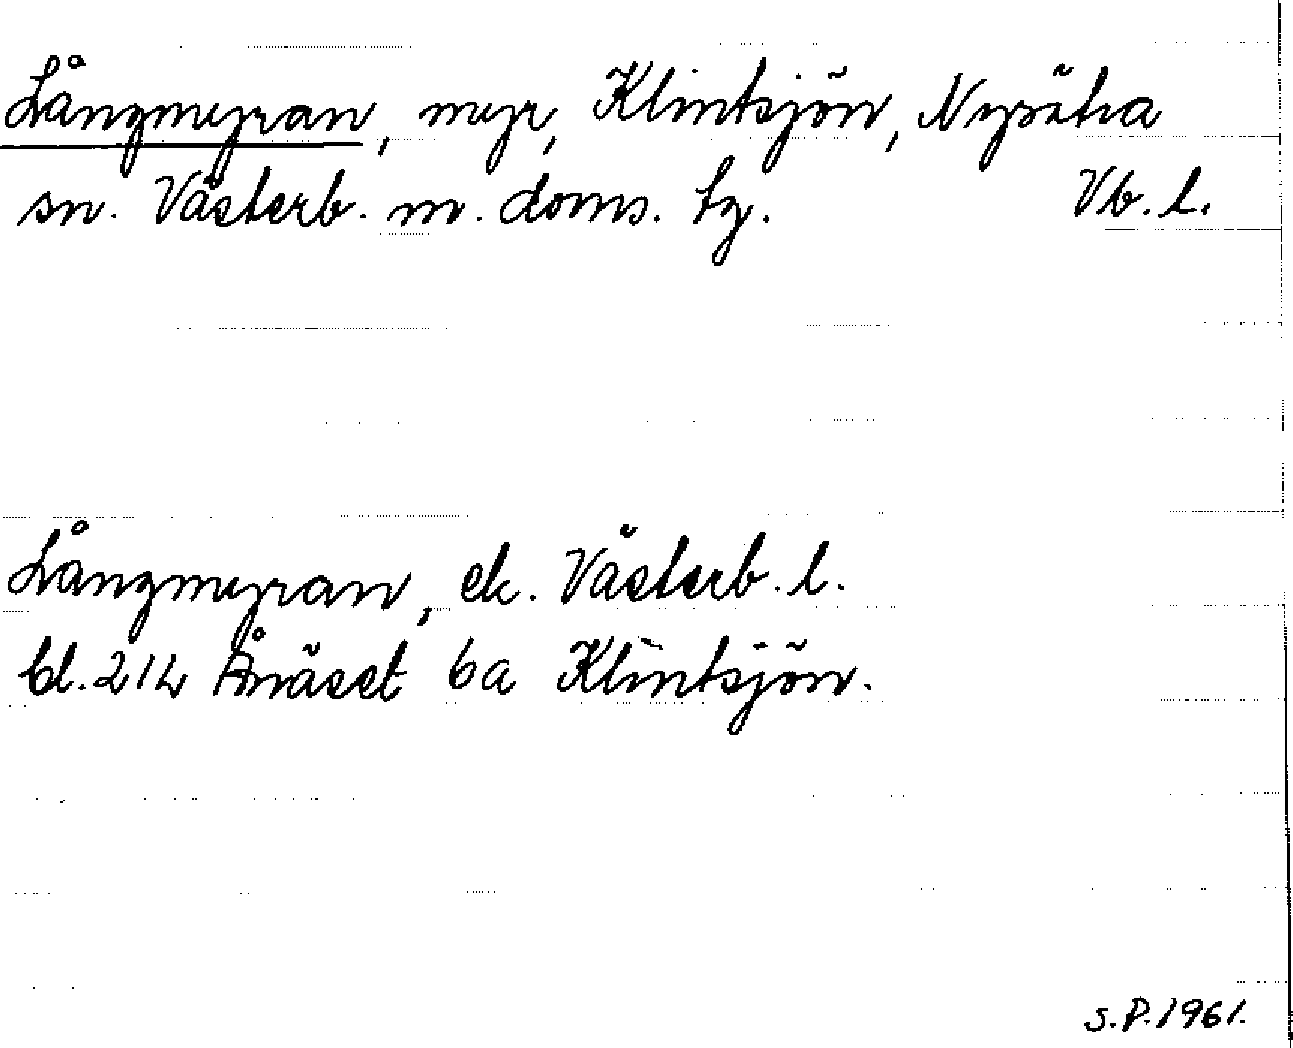 Långmyran, myr, Klintsjön, Nysätra
sn. Västerb. m. doms. tg. Vb. l.
Långmyran, ek. Västerb. l.
bl. 21L Ånäset 6a Klintsjön.
S.P. 1961.